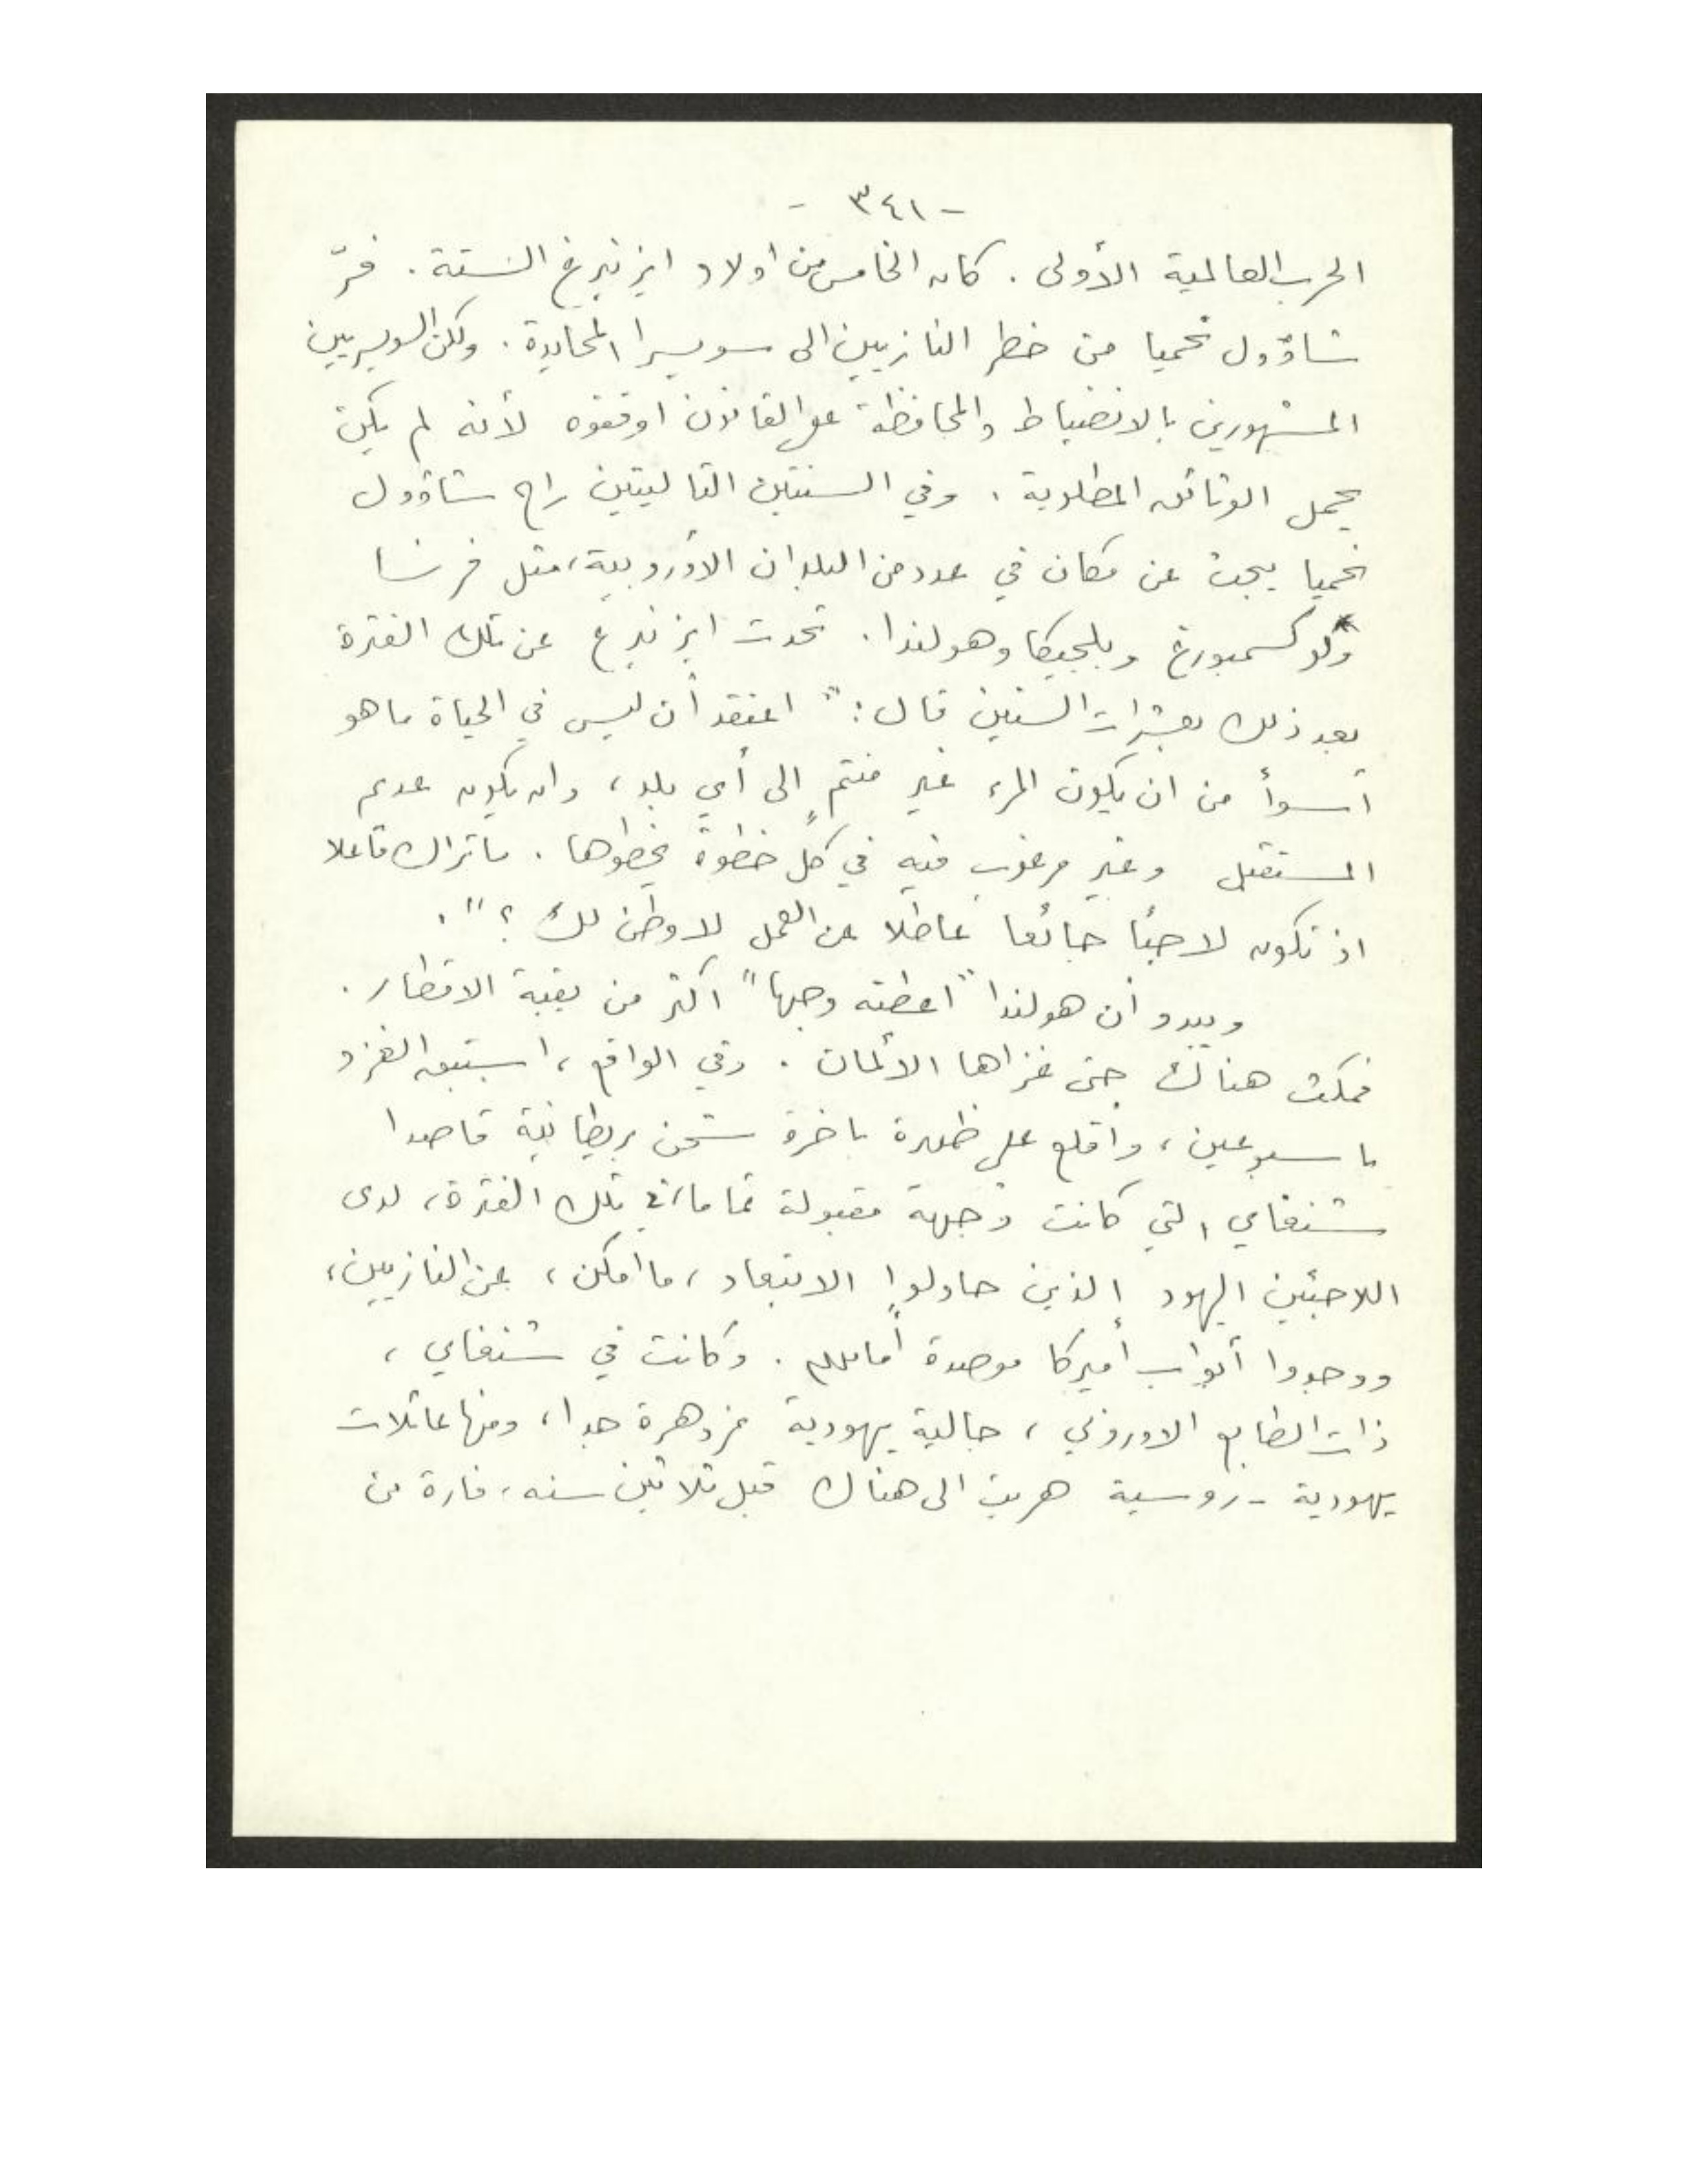 - ٣٤١ -
الحرب العالمية الأولى . كان الخامس من اولاد ايزنبرغ الستة . فرّ
شاؤول نحميا من خطر النازيين الى سويسرا المحايدة . ولكن السويسريين
المشهورين بالانضباط والمحافظة على القانون اوقفوه لأنه لم يكن
يحمل الوثائق المطلوبة . وفي السنتين التاليتين راح شاؤول
نحميا يبحث عن مكان في عدد من البلدان الأوروبية، مثل فرنسا
ولوكسمبورغ وبلجيكا وهولندا . تحدث ايزنبرغ عن تلك الفترة
بعد ذلك بعشرات السنين قال : " اعتقد أن ليس في الحياة ما هو
أسوأ من ان يكون المرء غير منتمٍ الى أي بلد ، وان يكون عديم
المستقبل وغير مرغوب فيه في كل خطوة يخطوها . ما تراك فاعلا
اذ تكون لاجئا جائعا عاطلا عن العمل لا وطن لك ؟ " .
ويبدو أن هولندا " اعطته وجها " اكثر من بقية الاقطار .
فمكث هناك حتى غزاها الألمان . وفي الواقع ، استبق الغزو
باسبوعين ، واقلع على ظهر باخرة شحن بريطانية قاصدا
شنغاي التي كانت وجهة مقبولة تماما في تلك الفترة ، لدى
اللاجئين اليهود الذين حاولوا الابتعاد ، ما امكن ، عن النازيين ،
ووجدوا أبواب أميركا موصدة أمامهم . وكانت في شنغاي ،
ذات الطابع الاوروبي ، جالية يهودية مزدهرة جدا ، ومنها عائلات
يهودية - روسية هربت الى هناك قبل ثلاثين سنه ، فارة من